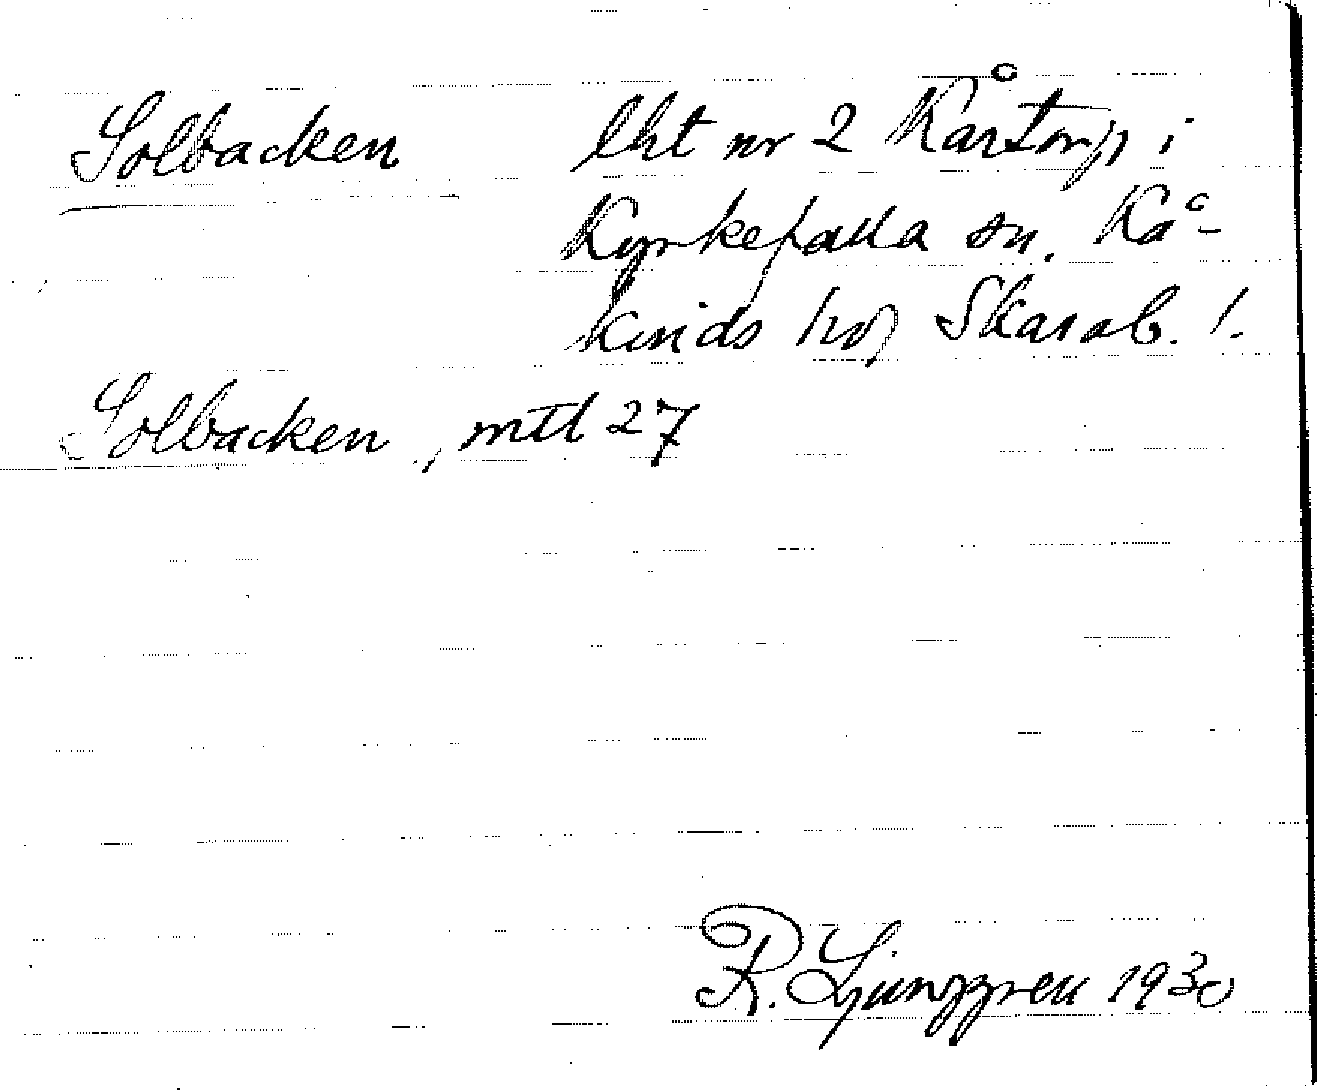 Solbacken lht nr 2 Kårtorp i
Kyrkefalla sn. Kå-
kinds hd, Skarab. l.
Solbacken, mtl 27
R. Ljunggren 1930